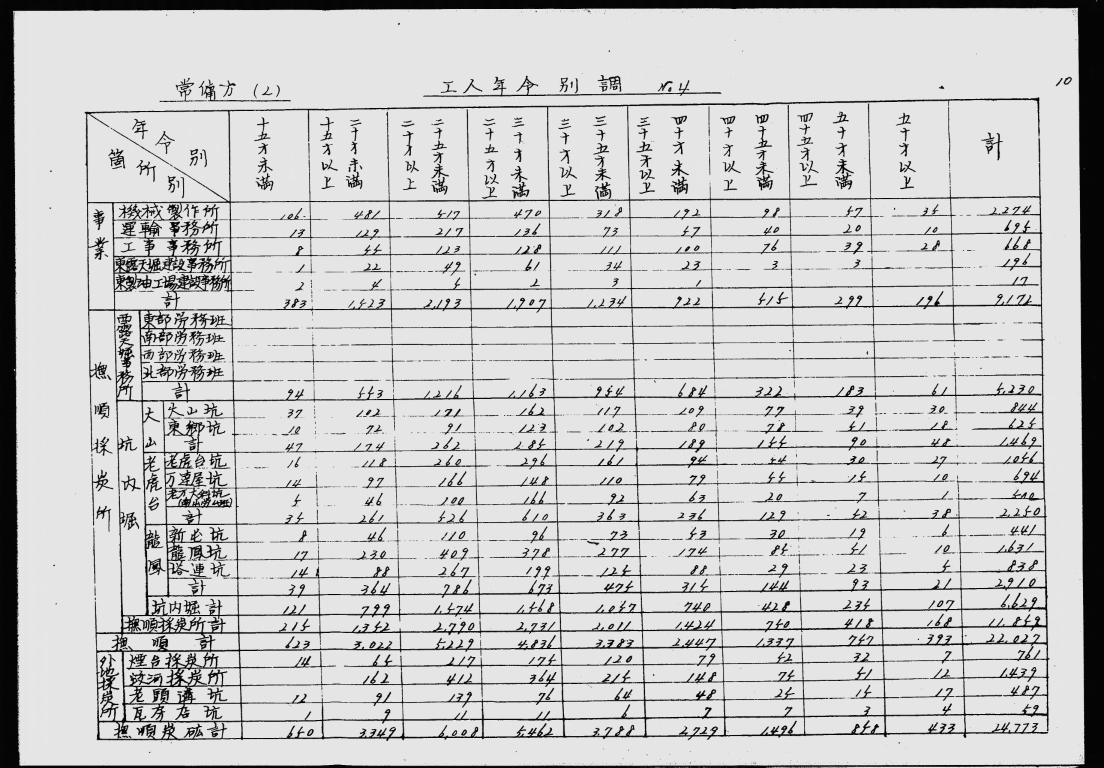 10
常傭方 (2)
工人年令別調 No.4
年令別
箇所別
十五才未満
十五才以上 二十才未満
二十才以上 二十五才未満
二十五才以上 三十才未満
三十才以上 三十五才未満
三十五才以上 四十才未満
四十才以上 四十五才未満
四十五才以上 五十才未満
五十才以上
計
事業
機械製作所 106 481 517 470 318 192 98 57 35 2,274
運輸事務所 13 129 217 136 73 57 40 20 10 695
工事事務所 8 55 123 128 111 100 76 39 28 668
東露天堀建設事務所 1 22 49 61 34 23 3 3 196
東製油工場建設事務所 2 4 5 2 3 1 17
計 383 1,523 2,193 1,907 1,234 922 515 299 196 9,172
撫順採炭所
西露天堀事務所
東部労務班
南部労務班
西部労務班
北部労務班
計 94 553 1,216 1,163 954 684 322 183 61 5,230
坑内堀
大山
大山坑 37 102 171 162 117 109 77 39 30 844
東郷坑 10 72 91 123 102 80 78 51 18 625
計 47 174 262 285 219 189 155 90 48 1,469
老虎台
老虎台坑 16 118 260 296 161 94 54 30 27 1,056
万達屋坑 14 97 166 148 110 79 55 15 10 694
老万大斜坑 5 46 100 166 92 63 20 7 1 500
計 35 261 526 610 363 236 129 52 38 2,250
龍鳳
新屯坑 8 46 110 96 73 53 30 19 6 441
龍鳳坑 17 230 409 378 277 174 85 51 10 1,631
塔連坑 14 88 267 199 125 88 29 23 5 838
計 39 364 786 673 475 315 144 93 21 2,910
坑内堀計 121 799 1,574 1,568 1,057 740 428 235 107 6,629
撫順採炭所計 215 1,352 2,790 2,731 2,011 1,424 750 418 168 11,859
撫順計 623 3,022 5,229 4,836 3,383 2,447 1,337 757 393 22,027
外地採炭所
煙台採炭所 14 65 217 175 120 79 52 32 7 761
蛟河採炭所 162 412 364 215 148 75 51 12 1,439
老頭溝坑 12 91 139 76 64 48 25 15 17 487
瓦房店坑 1 9 11 11 6 7 7 3 4 59
撫順炭砿計 650 3,349 6,008 5,462 3,788 2,729 1,496 858 433 24,773